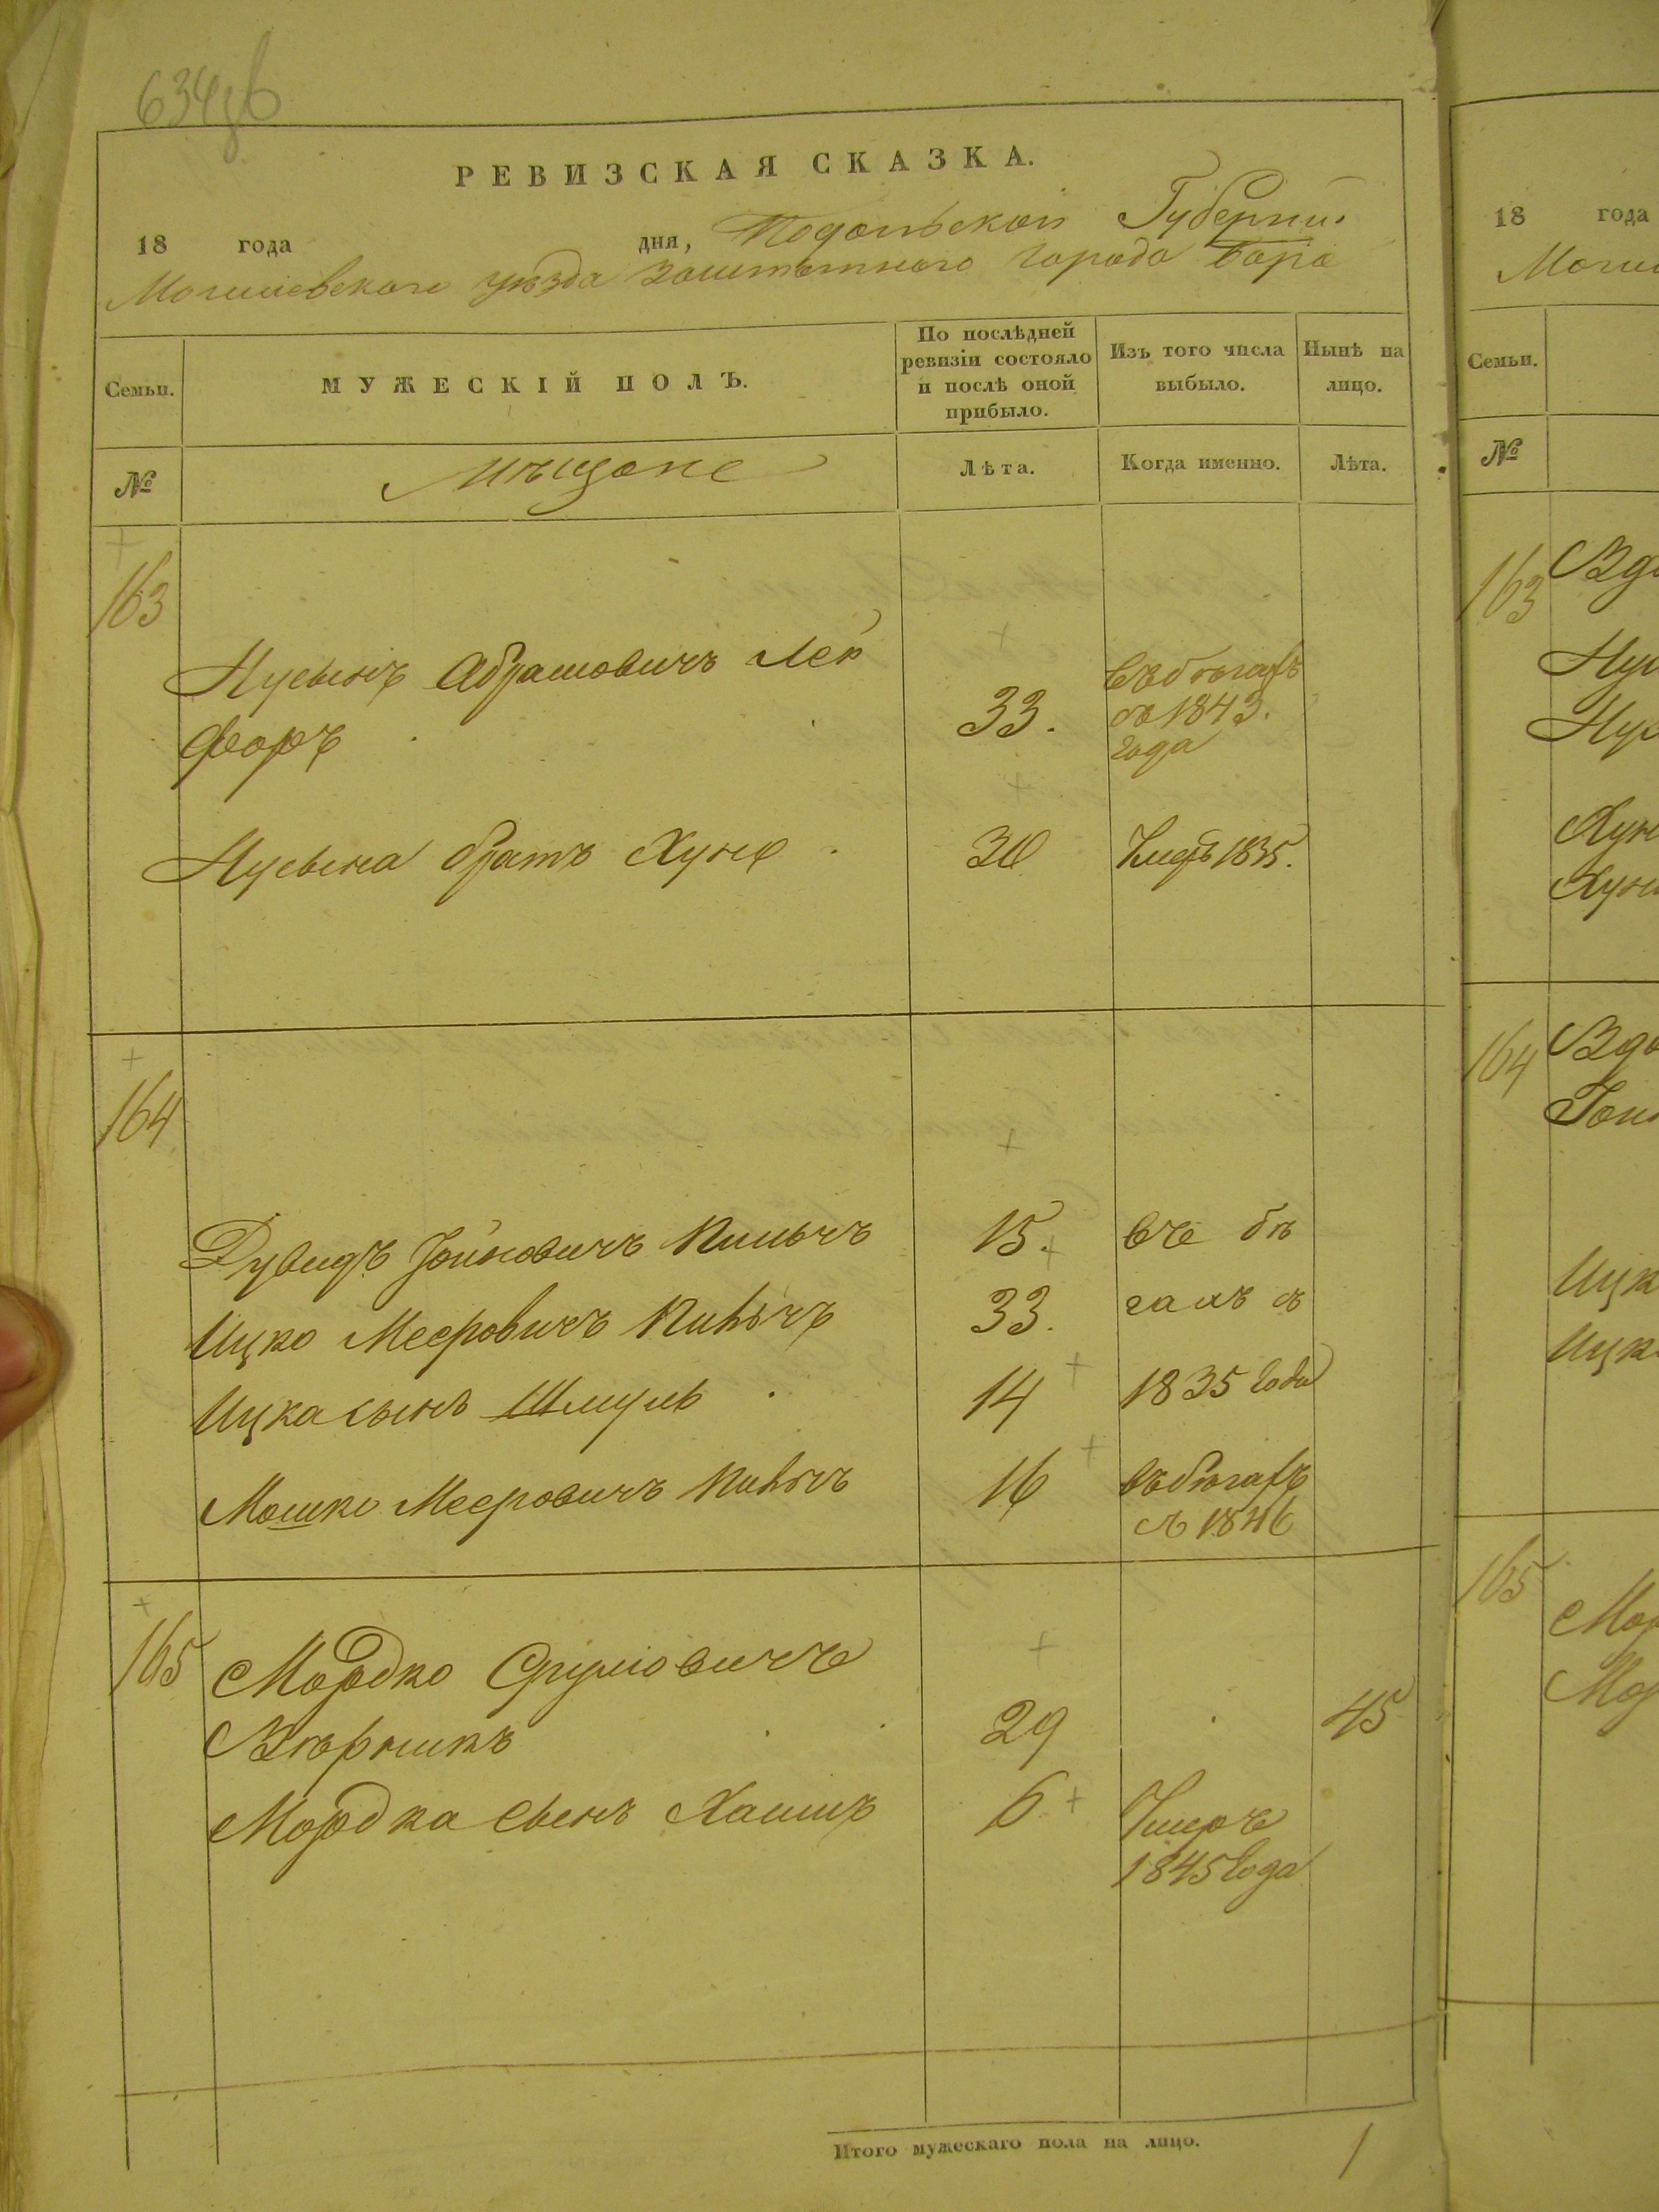 634 об
РЕВИЗСКАЯ СКАЗКА.
18 года дня, Подольской Губернии
Могилевского уѣзда заштатного города Бара
Семьи.
МУЖЕСКІЙ ПОЛЪ.
По послѣдней ревизіи состояло и послѣ оной прибыло.
Изъ того числа выбыло.
Нынѣ на лицо.
№
Мѣщане
Лѣта.
Когда именно.
Лѣта.
163
Нусынъ Абрамовичъ Лек
форъ
33.
въ бѣгахъ
съ 1843.
года
Нусына братъ Хуна
30
1835.
164
Дувидъ Іойновичъ
15.
въ бѣ
Ицко Мееровичъ
33.
гахъ съ
Ицка сынъ Шмуль
14
1835 года
Мошко Мееровичъ
16
въ бѣгахъ
съ 1846
165
Мордко Сруловичъ
29
45
Мордка сынъ Хаимъ
6
Умеръ
1845 года
Итого мужескаго пола на лицо.
1
18 года
Семьи.
№
163
164
165